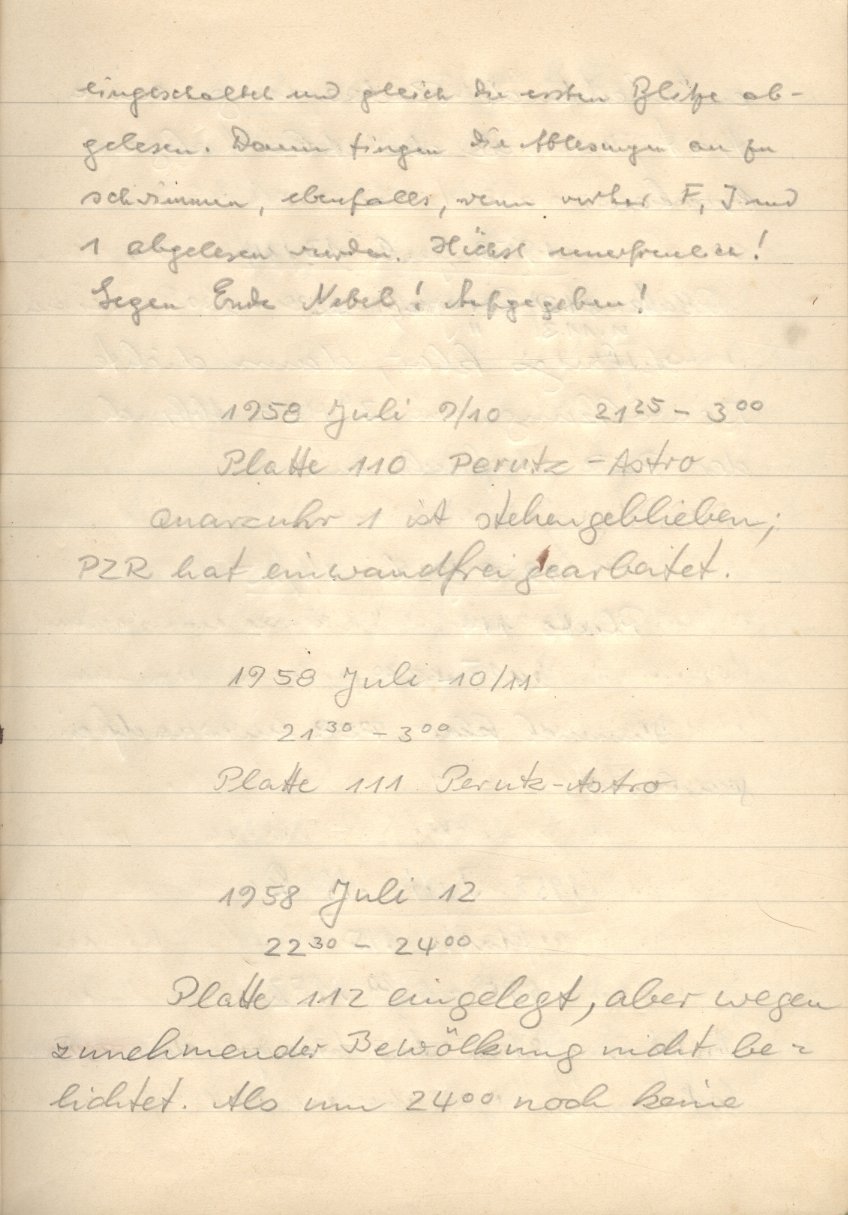 eingeschaltet und gleich die ersten Blitze ab-
gelesen. Dann fingen die Ablesungen an zu
schwimmen, ebenfalls, wenn vorher F, J und
1 abgelesen wurden. Höchst unerfreulich!
Gegen Ende Nebel! Aufgegeben!
1958 Juli 9/10 21²⁵ – 3⁰⁰
Platte 110 Perutz-Astro
Quarzuhr 1 ist stehengeblieben;
PZR hat einwandfrei gearbeitet.
1958 Juli 10/11
21³⁰ – 3⁰⁰
Platte 111 Perutz-Astro
1958 Juli 12
22³⁰ – 24⁰⁰
Platte 112 eingelegt, aber wegen
zunehmender Bewölkung nicht be-
lichtet. Als um 24⁰⁰ noch keine